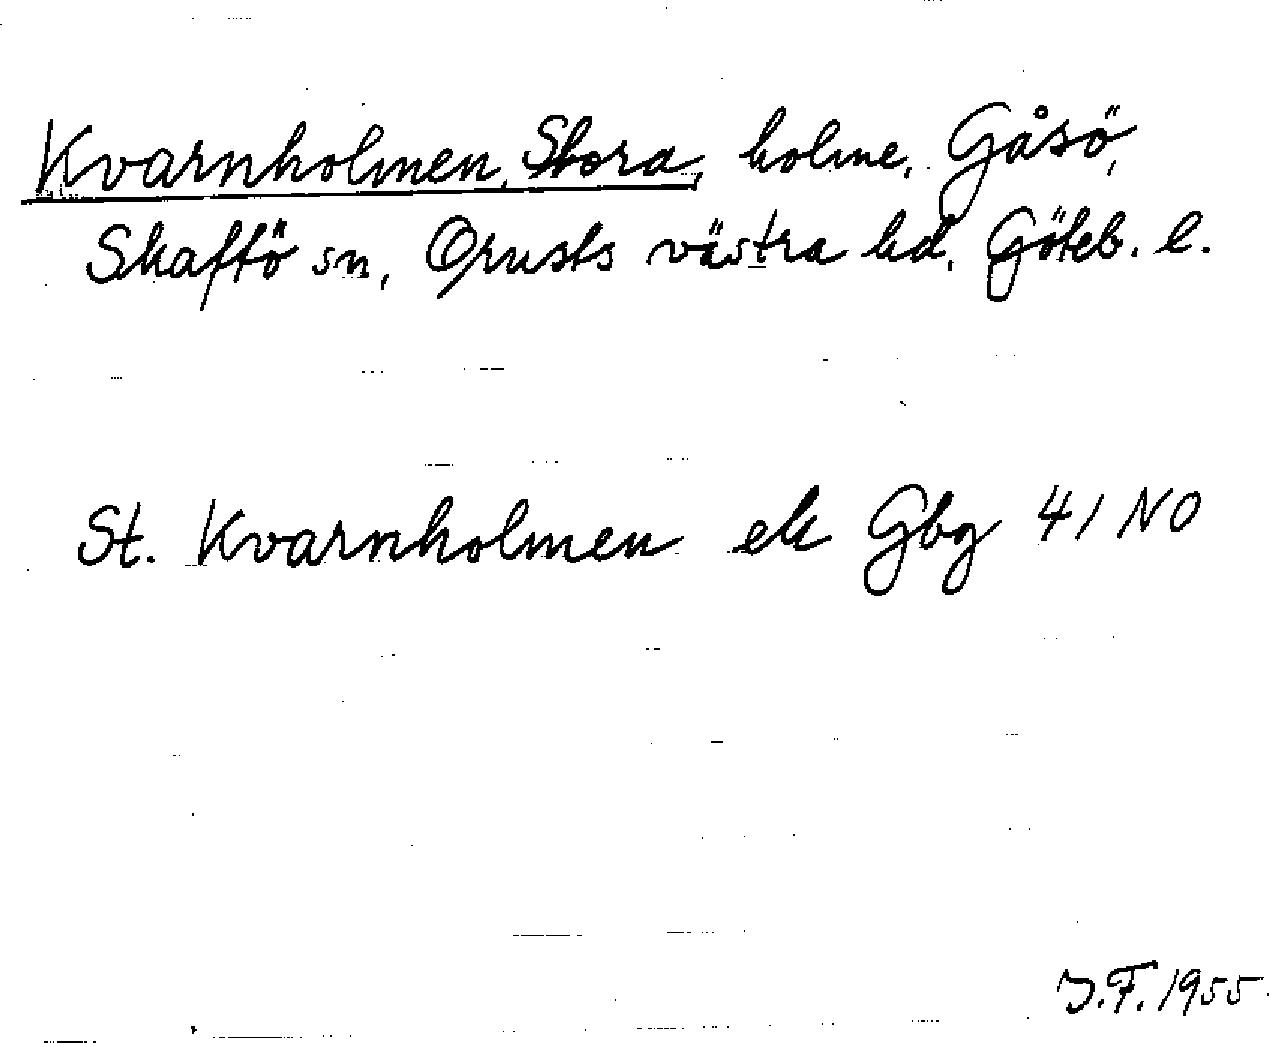 Kvarnholmen, Stora, holme, Gåsö,
Skaftö sn, Orusts västra hd, Göteb. l.
St. Kvarnholmen ek Gbg 41 NO
J.F. 1955